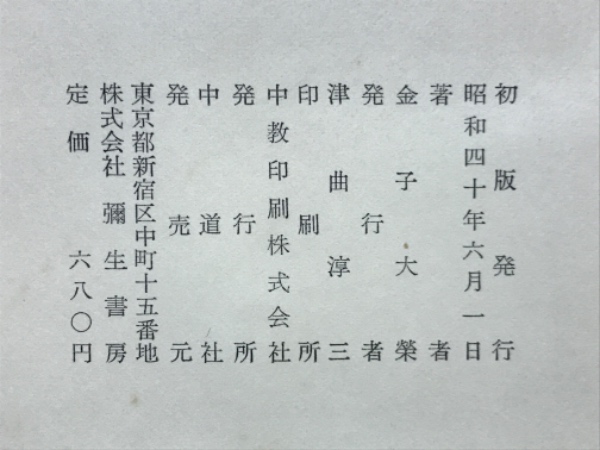 初版発行
昭和四十年六月一日
著者
金子大榮
発行者
津曲淳三
印刷所
中教印刷株式会社
発行所
中道社
発売元
東京都新宿区中町十五番地
株式会社彌生書房
定価 六八〇円